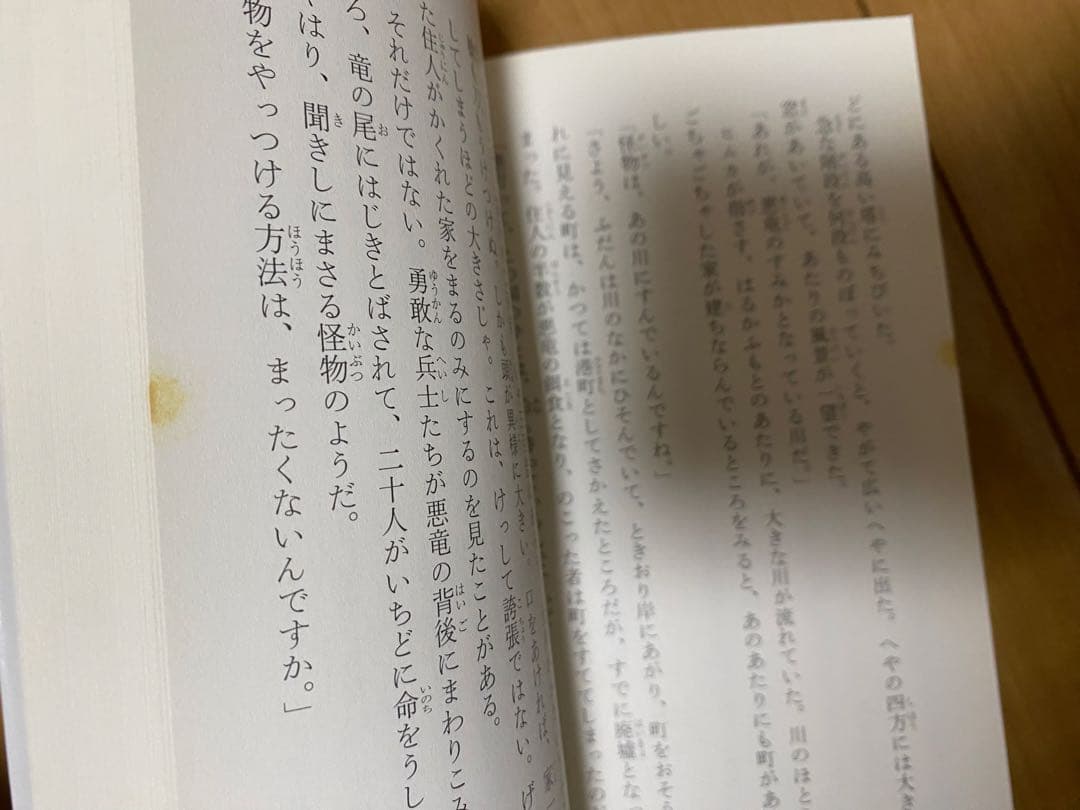 どにある高い塔にみちびいた。
急な階段を何段ものぼっていくと、やがて広いへやに出た。へやの四方には大き
窓があいていて、あたりの風景が一望できた。
「あれが、悪竜のすみかとなっている川だ。」
が指さす、はるかふもとのあたりに、大きな川が流れていた。川のほと
ごちゃごちゃした家が建ちならんでいるところをみると、あのあたりにも町があ
しい。
「怪物は、あの川にすんでいるんですね。」
「さよう、ふだんは川のなかにひそんでいて、ときおり岸にあがり、町をおそう
れに見える町は、かつては港町としてさかえたところだが、すでに廃墟となっ
まった。住人の半数が悪竜の餌食となり、のこった者は町をすててしまったの
うけつけぬ。しかも頭が異様に大きい。口をあければ、家一
してしまうほどの大きさじゃ。これは、けっして誇張ではない。げ
た住人がかくれた家をまるのみにするのを見たことがある。
それだけではない。勇敢な兵士たちが悪竜の背後にまわりこみ
ろ、竜の尾にはじきとばされて、二十人がいちどに命をうし
はり、聞きしにまさる怪物のようだ。
物をやっつける方法は、まったくないんですか。」